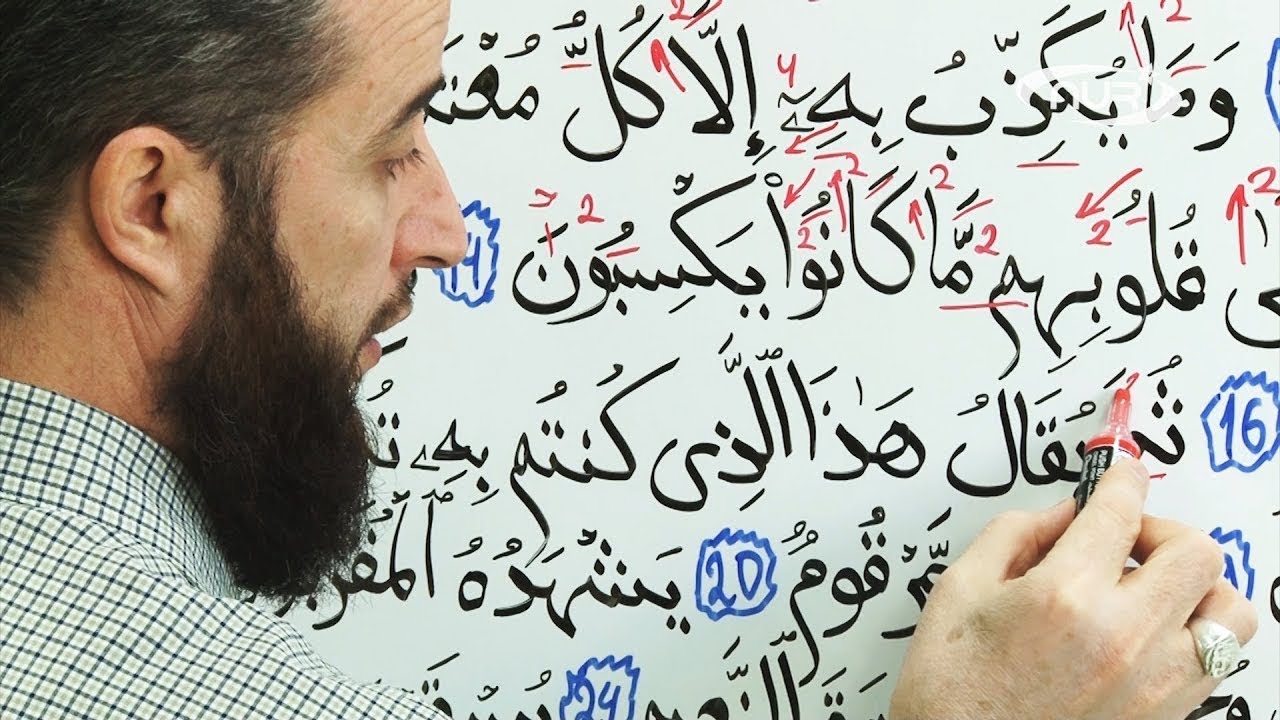 وَمَا يُكَذِّبُ بِهِۦٓ إِلَّا كُلُّ مُعْتَ
ىٰ قُلُوبِهِم مَّا كَانُوا۟ يَكْسِبُونَ 14
16 ثُمَّ يُقَالُ هَٰذَا ٱلَّذِى كُنتُم بِهِۦ تُ
مَّرْقُومٌ 20 يَشْهَدُهُ ٱلْمُقَرَّ
ٱلنَّعِيمِ 24 يُسْقَ